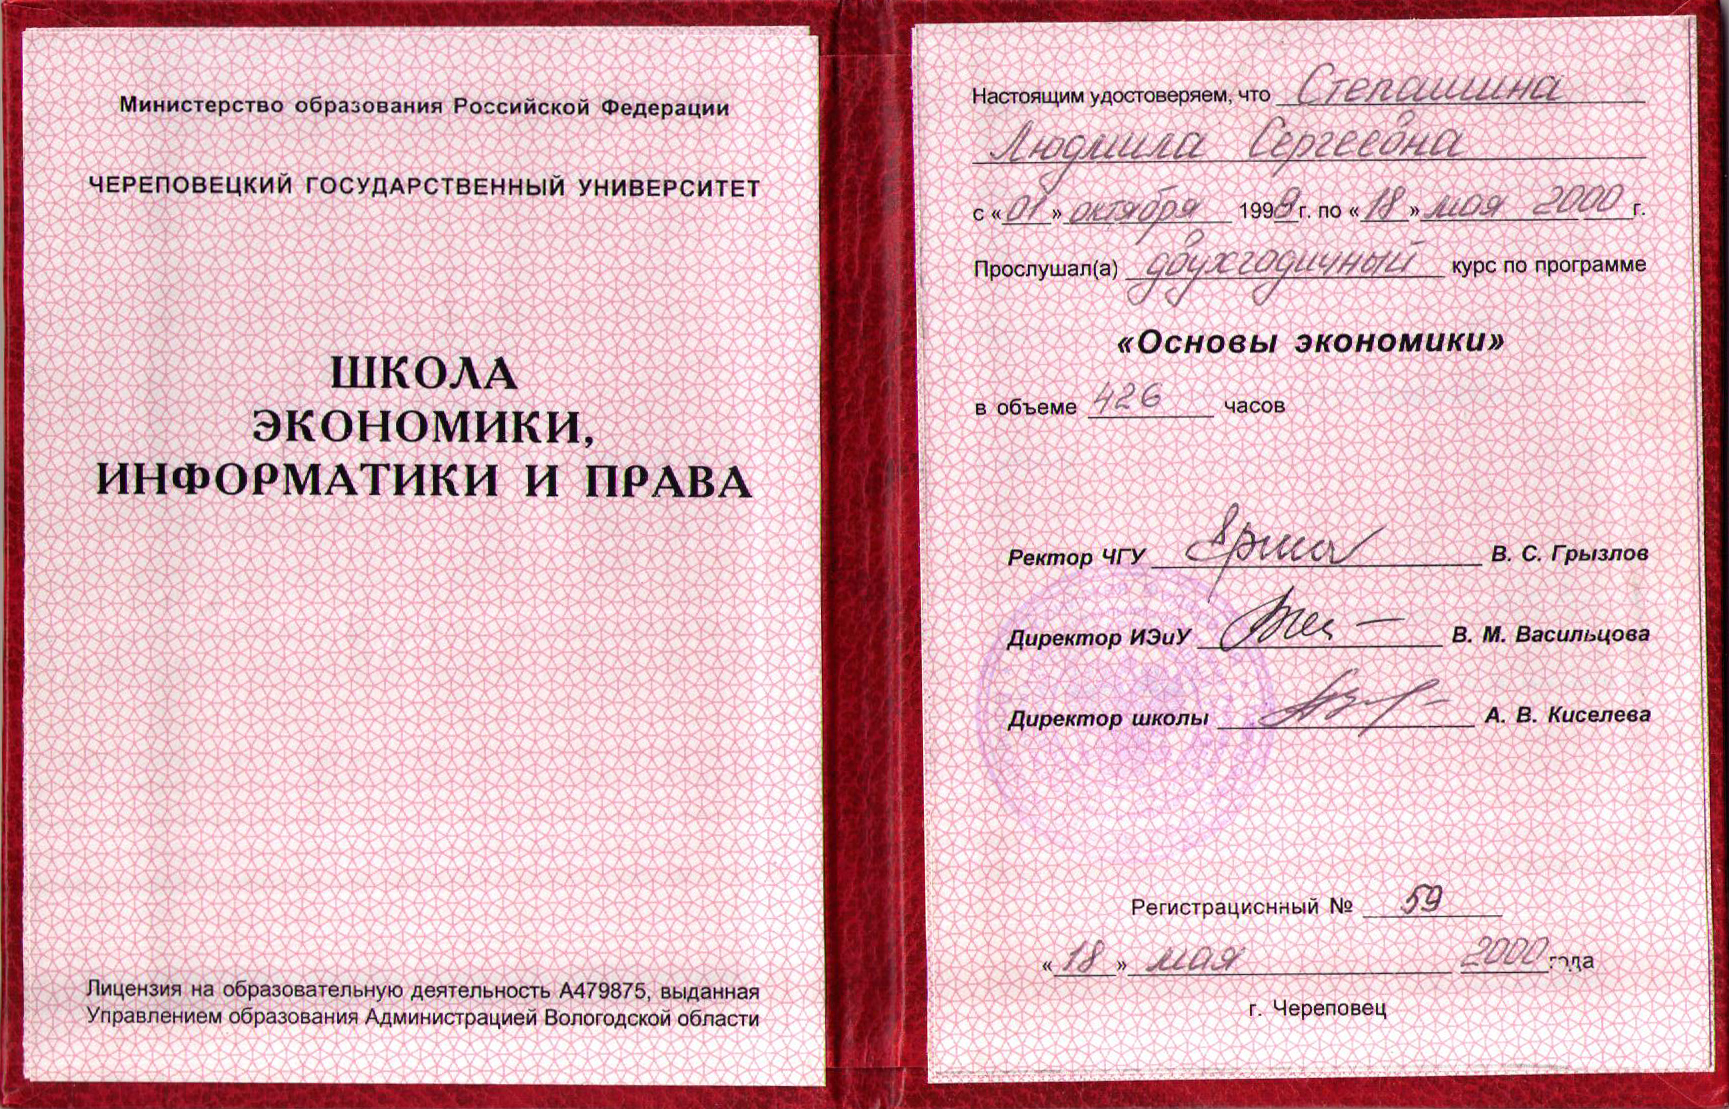 Министерство образования Российской Федерации
ЧЕРЕПОВЕЦКИЙ ГОСУДАРСТВЕННЫЙ УНИВЕРСИТЕТ
ШКОЛА
ЭКОНОМИКИ,
ИНФОРМАТИКИ И ПРАВА
Лицензия на образовательную деятельность А479875, выданная
Управлением образования Администрацией Вологодской области
Настоящим удостоверяем, что Степашина
Людмила Сергеевна
с «01» октября 1998 г. по «18» мая 2000 г.
Прослушал(а) двухгодичный курс по программе
«Основы экономики»
в объеме 426 часов
Ректор ЧГУ В. С. Грызлов
Директор ИЭиУ В. М. Васильцова
Директор школы А. В. Киселева
Регистрационный № 59
«18» мая 2000 года
г. Череповец